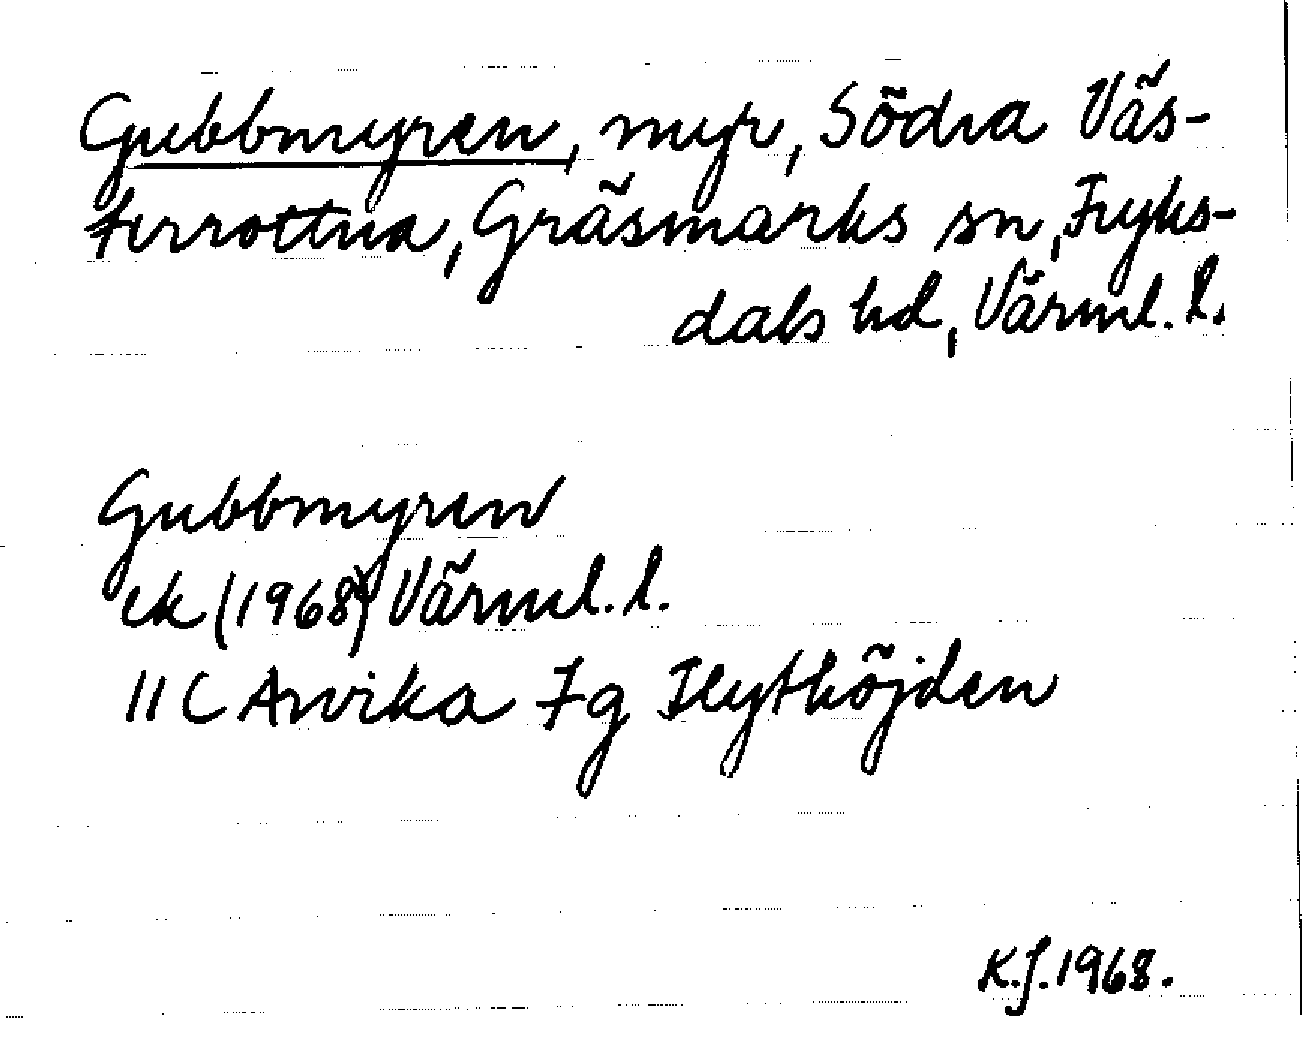 Gubbmyren, myr, Södra Väs-
terrottna, Gräsmarks sn, Fryks-
dals hd, Värml. l.
Gubbmyren
ek (1968) Värml. l.
11C Arvika 7g Flythöjden
K.J. 1968.